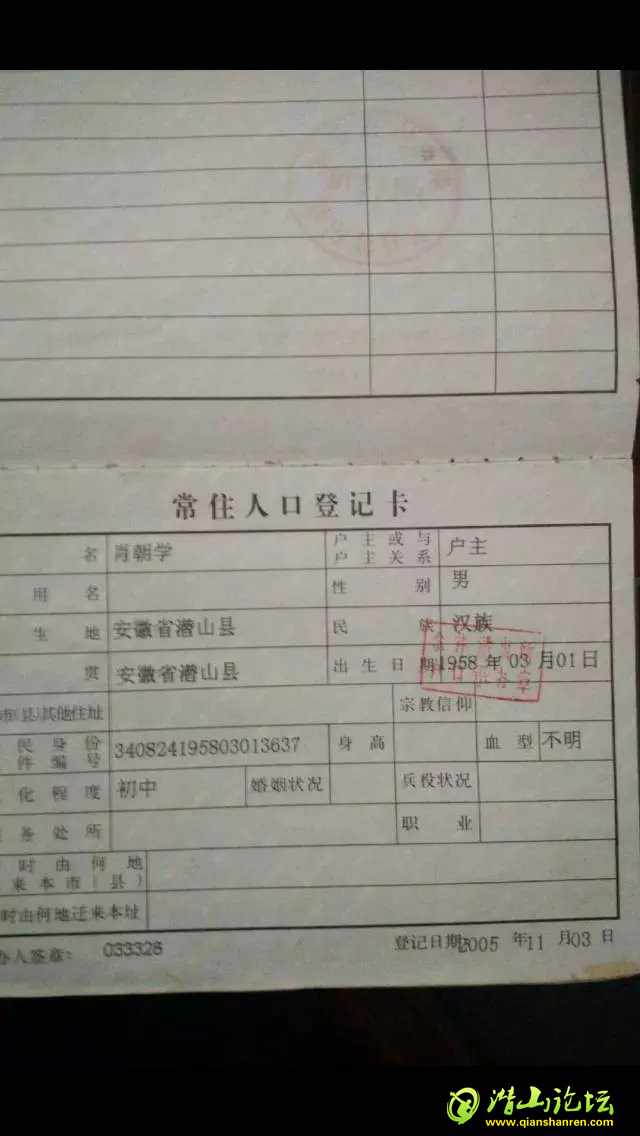 常住人口登记卡
名 肖朝学 户主或与户主关系 户主
用名 性别 男
生地 安徽省潜山县 民族 汉族
贯 安徽省潜山县 出生日期 1958 年 03 月 01 日
市(县)其他住址 宗教信仰
民身份件编号 340824195803013637 身高 血型 不明
化程度 初中 婚姻状况 兵役状况
务处所 职业
时由何地来本市(县)
时由何地迁来本址
办人签章: 033328 登记日期: 2005 年 11 月 03 日
潜山论坛
www.qianshanren.com